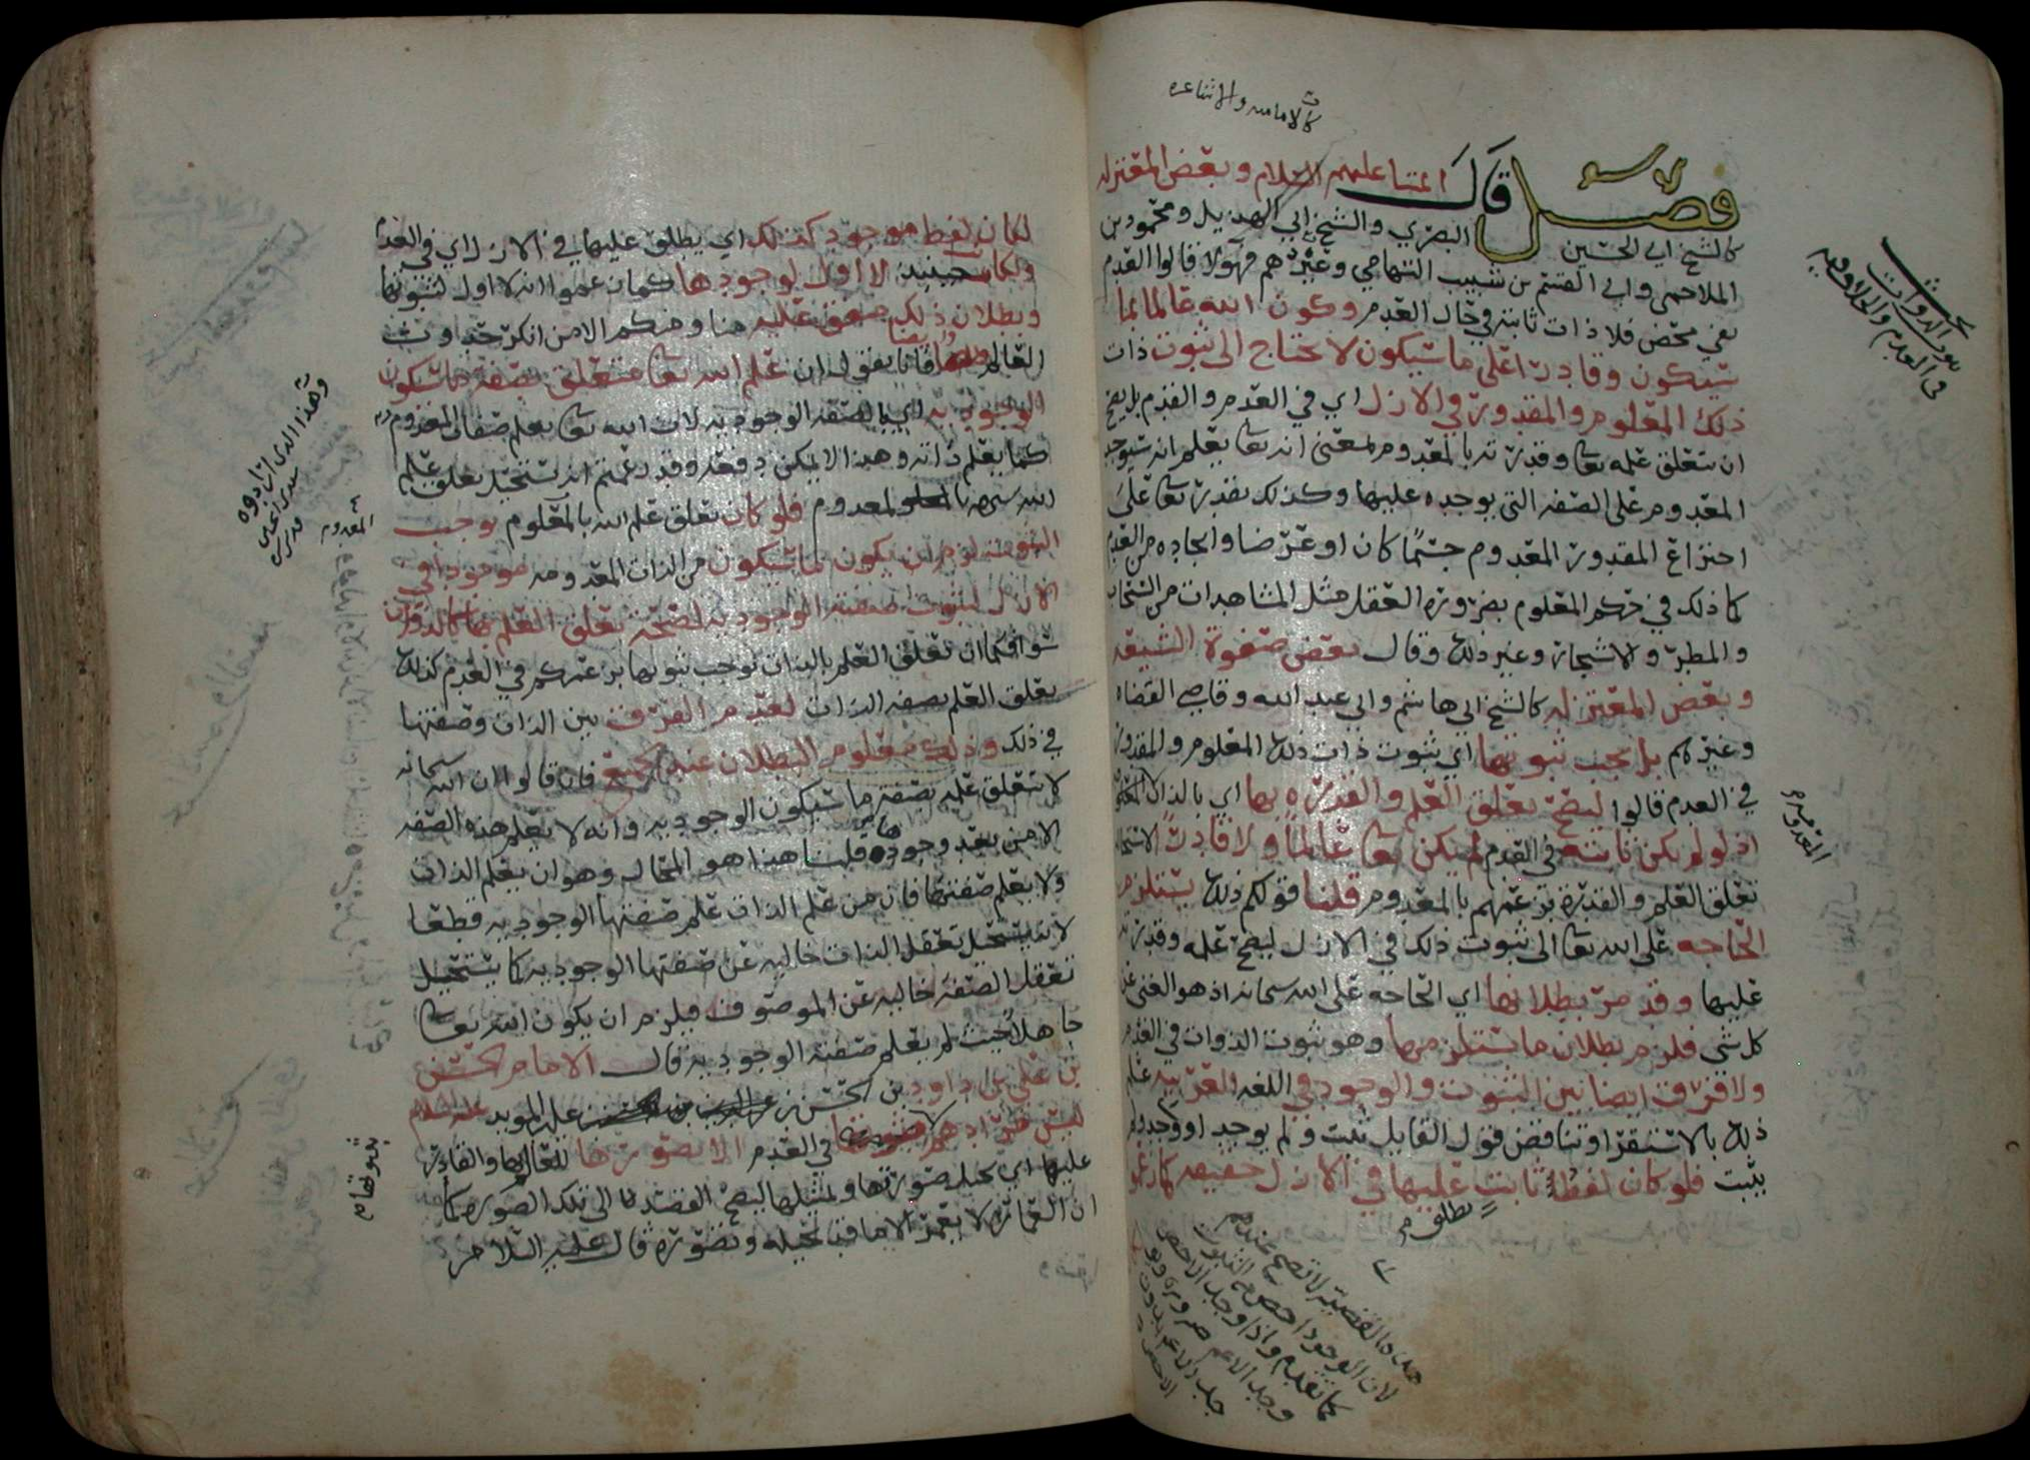 كالامامية والاشاعرة
فصل قال ائمتنا عليهم السلام وبعض المعتزله
كالشيخ ابي الحسين البصري والشيخ ابي الهذيل ومحمود بن
الملاحمي وابي القسم بن شبيب التهامي وغيرهم فهؤلا قالوا المعدوم
نفي محض فلا ذات ثابته في حال العدم وكون الله عالما بما
سيكون وقادرا على ما سيكون لا يحتاج الى ثبوت ذات
ذلك المعلوم والمقدور في الازل اي في العدم والقدم بل يصح
ان يتعلق علمه تعا وقدرته بالمعدوم بمعنى انه تعا يعلم انه سيوجد
المعدوم على الصفه التي يوجده عليها وكذلك يقدر تعا على
اختراع المقدور المعدوم جسما كان او عرضا وايجاده من العدم
كما ذلك في حكم المعلوم بضرورة العقل مثل المشاهدات من السحاب
والمطر والاشجار وغير ذلك وقال بعض صفوة الشيعه
وبعض المعتزله كالشيخ ابي هاشم وابي عبد الله وقاضي القضاه
وغيرهم بل يجب ثبوتها اي ثبوت ذات ذلك المعلوم والمقدور
في العدم قالوا ليصح تعلق العلم والقدره بها اي بالذات
اذ لو لم يكن ثابته في القدم لم يكن تعا عالما ولا قادرا
تعلق العلم والقدرة بزعمهم بالمعدوم قلنا قولكم ذلك يستلزم
الحاجه على الله تعا الى ثبوت ذلك في الازل ليصح علمه وقدرته
عليها وقد مر بطلانها اي الحاجه على الله سبحانه اذ هو الغني عن
كل شي فلزم بطلان ما يستلزمها وهو ثبوت الذوات في العدم
ولا فرق ايضا بين الثبوت والوجود في اللغه العربيه علم
ذلك بالاستقرا وتناقض قول القايل ثبت ولم يوجد او وجد ولم
يثبت فلو كان لفظ ثابت يطلق عليها في الازل حقيقه كما زعموا
المعدومه
هذه القضيه لا تصح عندهم
لان الوجود اخص من الثبوت
كما تقدم واذا وجد الاخص
وجد الاعم
لكان لفظ موجود كذلك اي يطلق عليها في الازل اي في القدم
ولكان حينيذ لا اول لوجودها كما زعموا انه لا اول لثبوتها
وبطلان ذلك متفق عليه منا ومنكم الا من انكر حدوث
العالم فانا نقول ان علم الله تعا متعلق بصفة ما سيكون
الوجوديه اي بالصفه الوجوديه لان الله تعا يعلم صفات المعدوم
كما يعلم ذاته وهذا لا يمكن دفعه وقد زعمتم انه يستحيل تعلق علم
الله سبحانه بالمعدوم فلو كان تعلق علم الله بالمعلوم يوجب
الثبوت لزم ان يكون ما سيكون من الذات المعدومه موجودا في
الازل لثبوت صفته الوجوديه لصحة تعلق العلم بها كالذوات
سوا فكما ان تعلق العلم بالذات يوجب ثبوتها بزعمكم في القدم كذلك
يتعلق العلم بصفه الذات لعدم الفرق بين الذات وصفتها
في ذلك وذلك معلوم البطلان عند الجميع فان قالوا ان الله سبحانه
لا يتعلق علمه بصفة ما سيكون الوجوديه وانه لا يعلم هذه الصفه
الا من بعد وجودها قلنا هذا هو المحال وهو ان يعلم الذات
ولا يعلم صفتها فان من علم الذات علم صفتها الوجوديه قطعا
لانه يستحيل تعقل الذات خاليه عن صفتها الوجوديه كما يستحيل
تعقل الصفه خاليه عن الموصوف فيلزم ان يكون الله تعا
جاهلا حيث لم يعلم صفته الوجوديه قال الامام الحسن
بن علي بن داود بن الحسن بن علي المويد عليه السلام
ليس مرادهم بثبوتها في العدم الا تصورها للعالم بها والقادر
عليها اي تخيل صورتها وتمثيلها ليصح القصد الى تلك الصوره كما
ان العمارة لا يعمر الا ما قد تخيله وتصوره قال عليه السلام
وهذا الذي ارادوه
المعدوم
ثبوتها